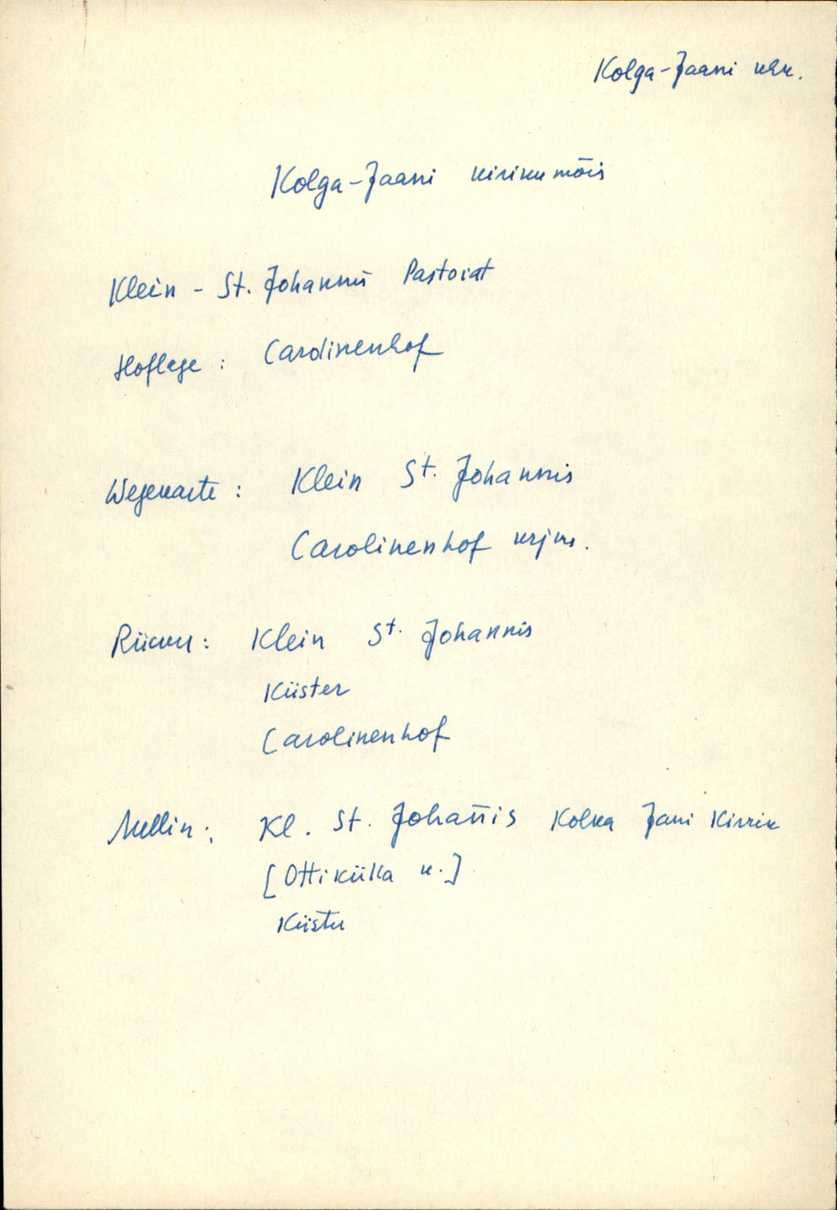 Kolga-Jaani khk.
Kolga-Jaani kirikumõis
Klein - St. Johannis Pastorat
Hoflage: Carolinenhof
Wegekarte: Klein St. Johannis
Carolinenhof krjm.
Rücker: Klein St. Johannis
Küster
Carolinenhof
Mellin: Kl. St. Johañis Kolka Jani Kirrik
[Otti külla k.]
Küster